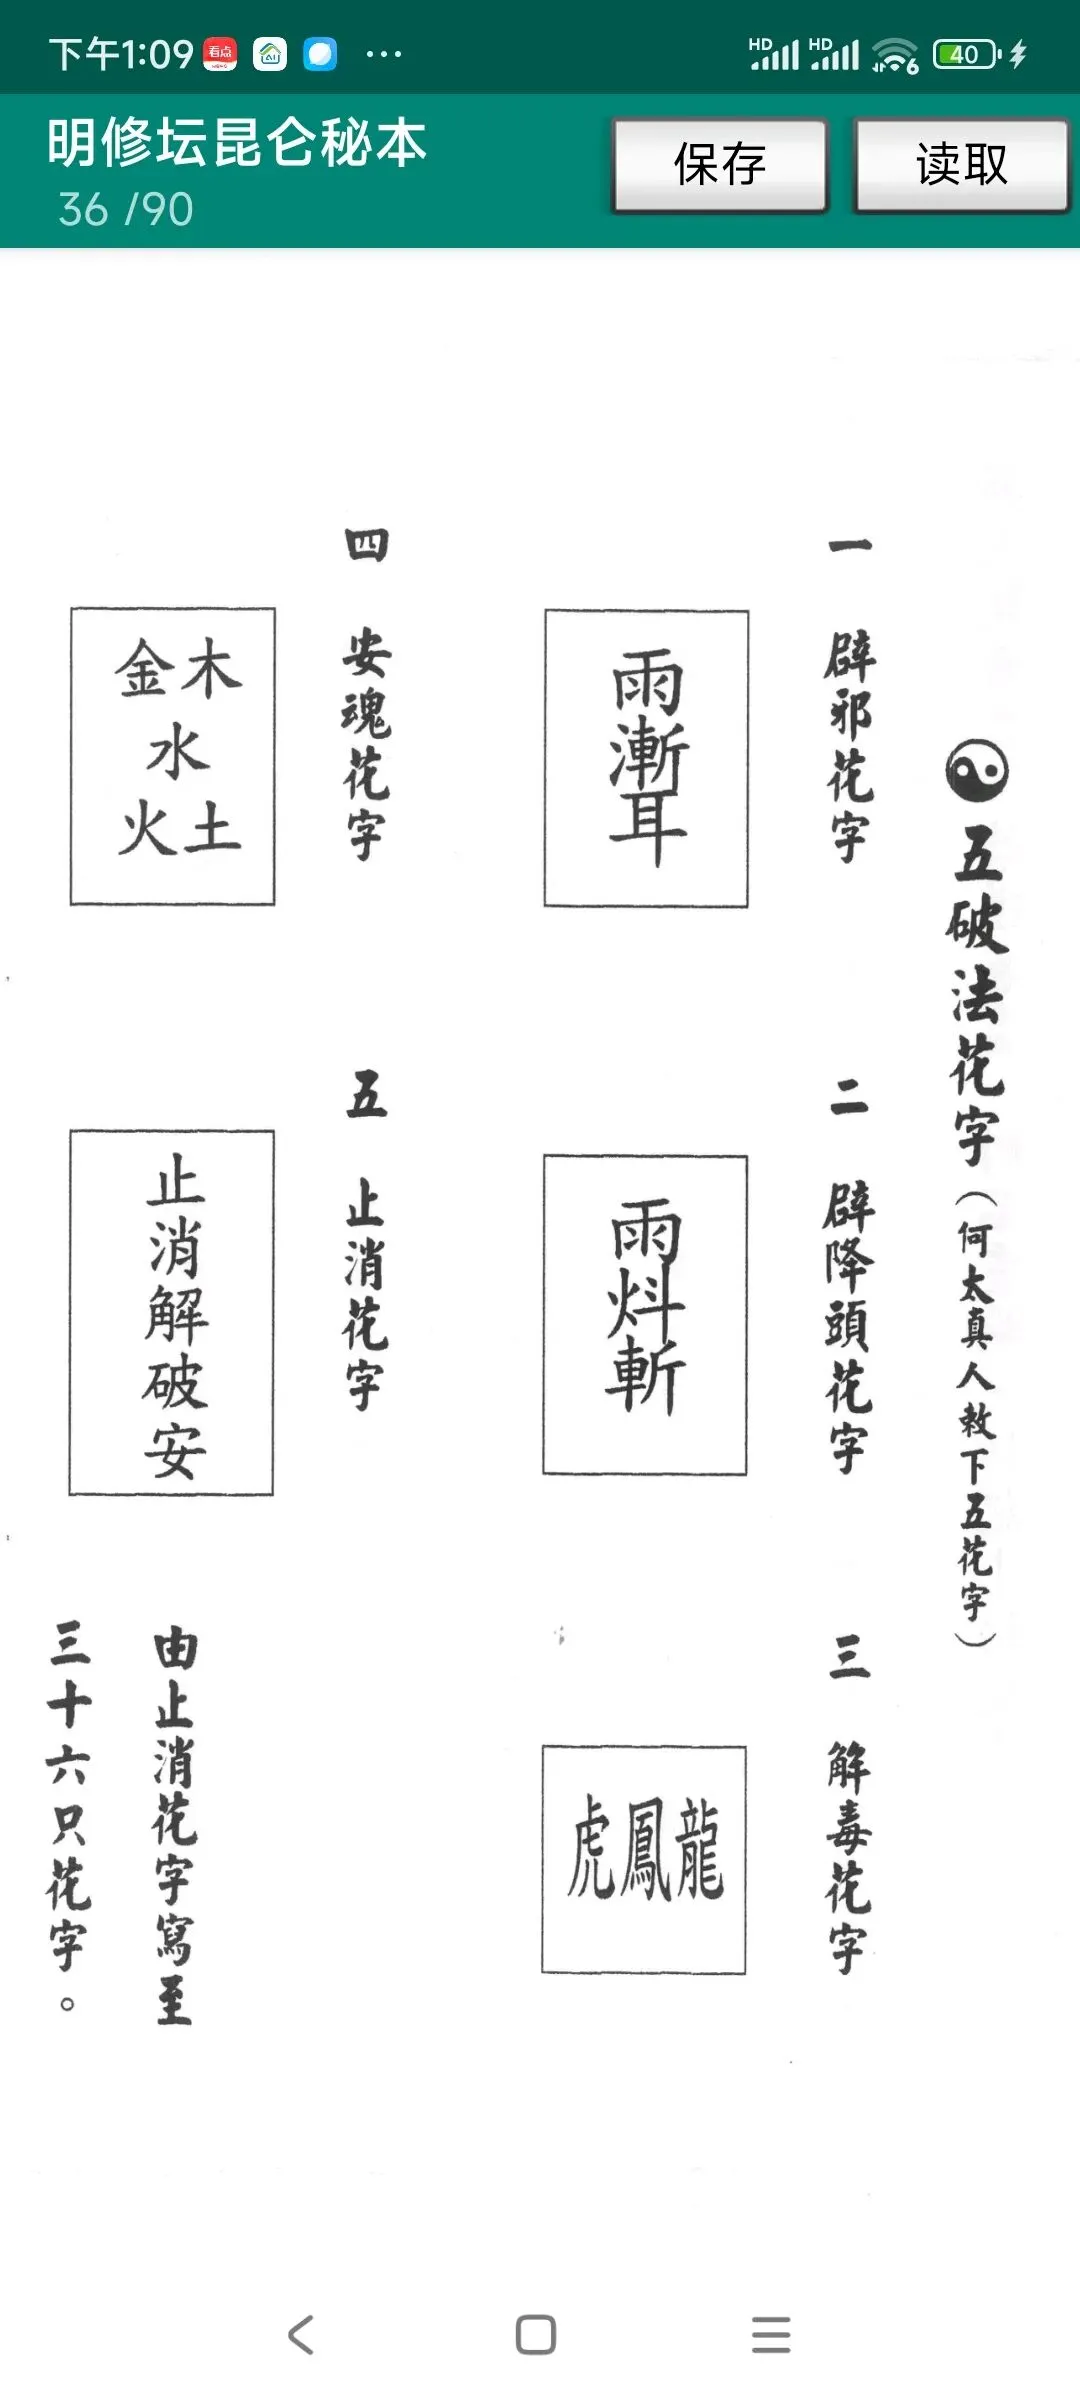 下午1:09
看点
AI
HD
HD
6
40
明修坛昆仑秘本
36 /90
保存
读取
五破法花字(何太真人敕下五花字)
一 辟邪花字
雨漸耳
二 辟降頭花字
雨炓斬
三 解毒花字
虎鳳龍
四 安魂花字
金木
水
火土
五 止消花字
止消解破安
由止消花字寫至
三十六只花字。